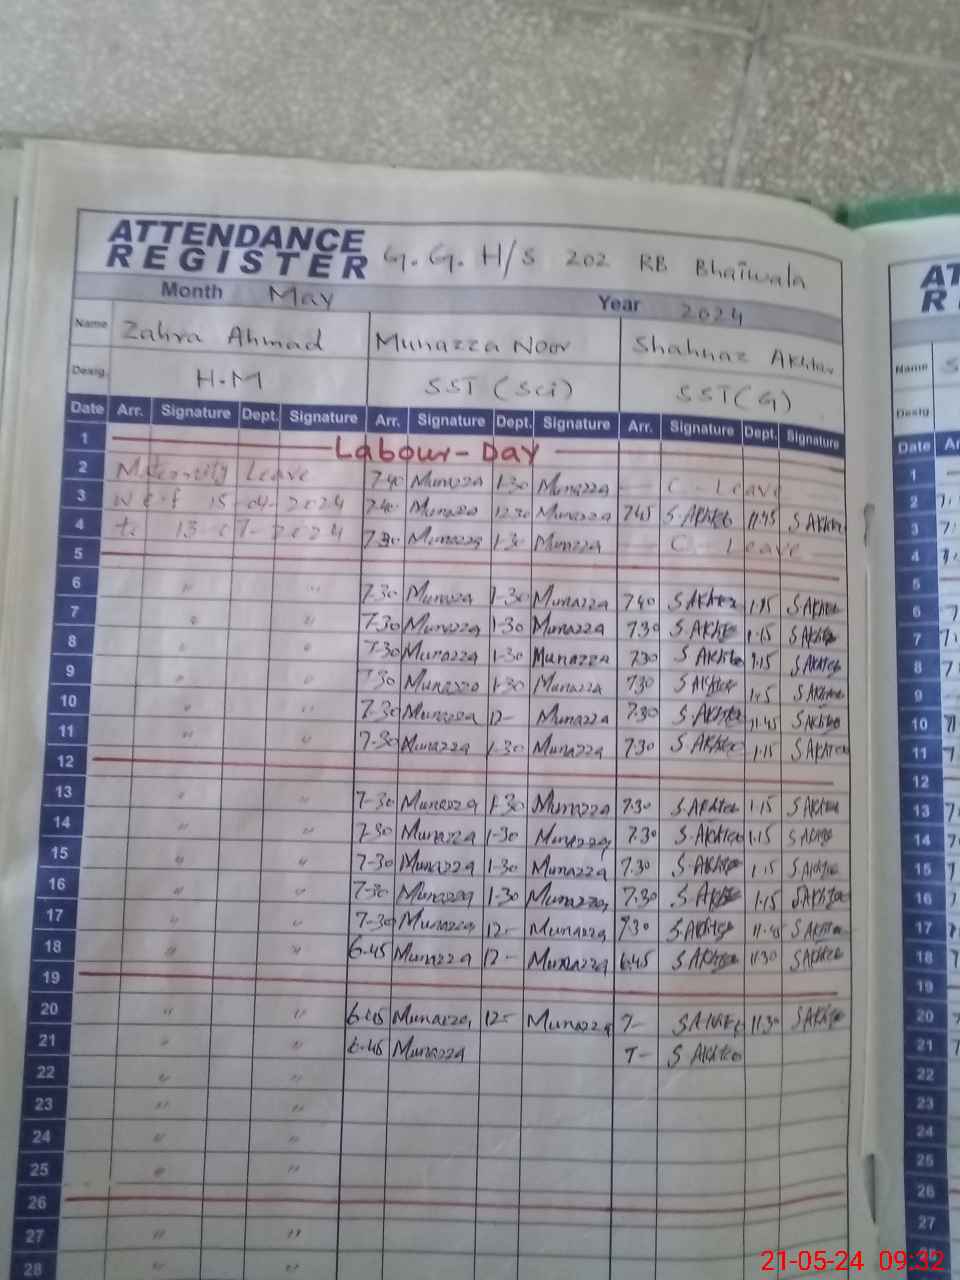 ATTENDANCE
REGISTER G.G. H/S 202 RB Bhaiwala
Month May Year 2024
Name Zahra Ahmad Munazza Noor Shahnaz Akhtar
Desig. H.M SST (Sci) SST(G)
Date Arr. Signature Dept. Signature Arr. Signature Dept. Signature Arr. Signature Dept. Signature
1 Labour-Day
2 Maternity Leave 7-40 Munazza 1-30 Munazza C-Leave
3 w.e.f 15-04-2024 7-40 Munazza 12.30 Munazza 7.45 S.Akhter 11.45 S Akhter
4 to 13-07-2024 7-30 Munazza 1-30 Munazza C-Leave
5
6 " " 7-30 Munazza 1-30 Munazza 7.40 S Akhter 1.15 S Akhter
7 " " 7-30 Munazza 1-30 Munazza 7.30 S.Akhter 1.15 S Akhter
8 " " 7-30 Munazza 1-30 Munazza 7.30 S Akhter 1.15 S Akhter
9 " " 7-30 Munazza 1-30 Munazza 7.30 S Akhter 1.15 S Akhter
10 " " 7-30 Munazza 12- Munazza 7.30 S.Akhter 11.45 S Akhter
11 " " 7-30 Munazza 1-30 Munazza 7.30 S.Akhter 1.15 S Akhter
12
13 " " 7-30 Munazza 1-30 Munazza 7.30 S.Akhter 1.15 S Akhter
14 " " 7-30 Munazza 1-30 Munazza 7.30 S.Akhter 1.15 S Akhter
15 " " 7-30 Munazza 1-30 Munazza 7.30 S.Akhter 1.15 S Akhter
16 " " 7-30 Munazza 1-30 Munazza 7.30 S.Akhter 1.15 S Akhter
17 " " 7-30 Munazza 12- Munazza 7.30 S.Akhter 11.45 S Akhter
18 " " 6.45 Munazza 12- Munazza 6.45 S Akhter 11.30 S Akhter
19
20 " " 6.45 Munazza 12- Munazza 7- S Akhter 11.30 S Akhter
21 " " 6.45 Munazza 7- S Akhter
22 " "
23 " "
24 " "
25 " "
26
27 " "
28 " "
Name
Desig
Date
1
2
3
4
5
6
7
8
9
10
11
12
13
14
15
16
17
18
19
20
21
22
23
24
25
26
27
21-05-24 09:32